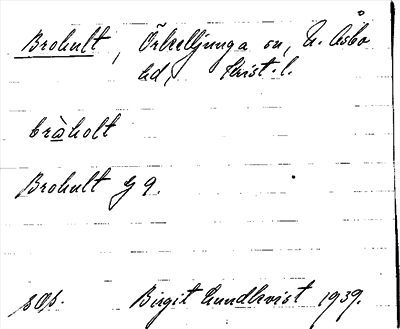 Brohult, Örkelljunga sn, N. Åsbo
hd, Krist. l.
bràholt
Brohult Gg.
s Øs. Birgit Lundkvist 1939.